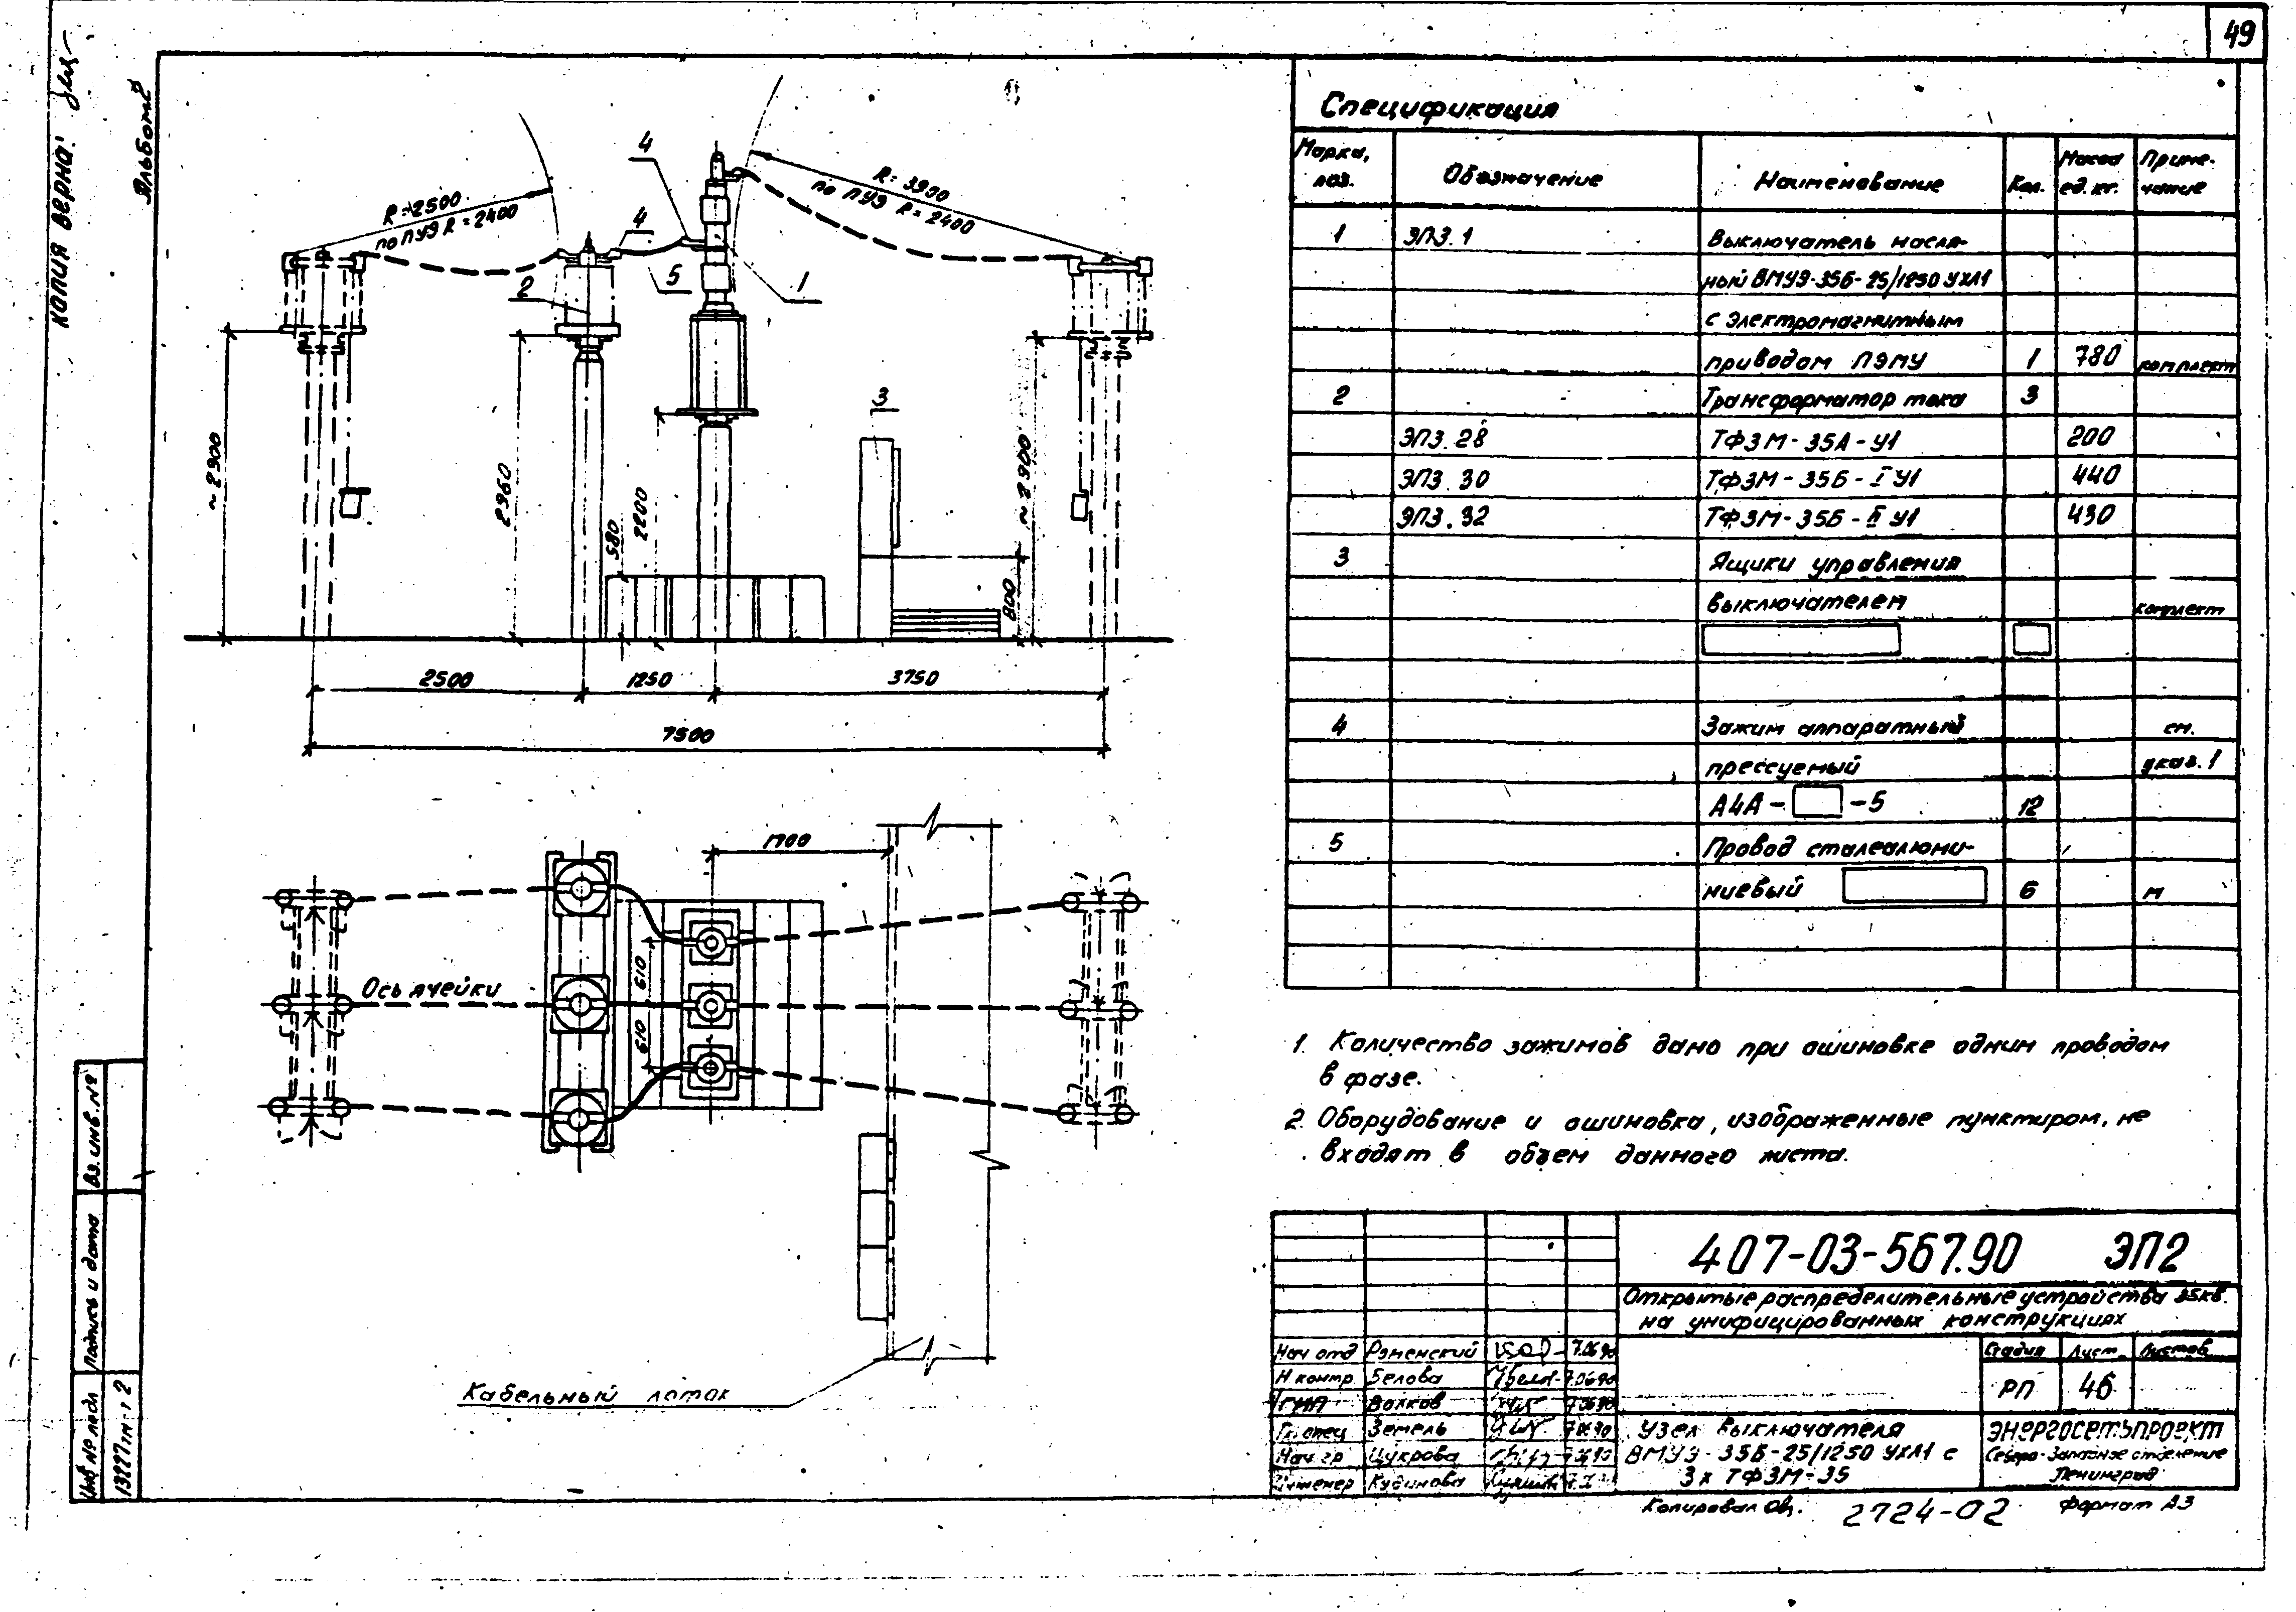 49
Копия верна:
Альбом 2
R=2500
по ПУЭ R=2400
R=3900
по ПУЭ R=2400
4
4
5
2
1
3
~2900
2960
580
2200
800
~2900
2500
1250
3750
7500
1700
610
610
Ось ячейки
Кабельный лоток
Спецификация
Марка, поз.
Обозначение
Наименование
Кол.
Масса ед. кг.
Примечание
1 ЭПЗ.1 Выключатель масля-
ный ВМУЭ-35Б-25/1250 УХЛ1
с электромагнитным
приводом ПЭМУ 1 780 комплект
2 Трансформатор тока 3
ЭПЗ.28 ТФЗМ-35А-У1 200
ЭПЗ.30 ТФЗМ-35Б-I У1 440
ЭПЗ.32 ТФЗМ-35Б-II У1 430
3 Ящики управления
выключателем комплект
4 Зажим аппаратный см.
прессуемый указ. 1
А4А- -5 12
5 Провод сталеалюми-
ниевый 6 м
1. Количество зажимов дано при ошиновке одним проводом
в фазе.
2. Оборудование и ошиновка, изображенные пунктиром, не
входят в объем данного листа.
407-03-567.90 ЭП2
Открытые распределительные устройства 35кв.
на унифицированных конструкциях
Нач отд Роменский 7.06.90
Н контр Белова 7.06.90
ГИП Волков 7.06.90
Гл. спец Земель 7.06.90
Нач гр Цукрова 7.06.90
Инженер Кудинова
Стадия Лист Листов
РП 46
Узел выключателя
ВМУЭ-35Б-25/1250 УХЛ1 с
3х ТФЗМ-35
ЭНЕРГОСЕТЬПРОЕКТ
Северо-Западное отделение
Ленинград
Копировал
2724-02
Формат А3
Вз. инв. №
Подпись и дата
Инв № подл
13227тм-т2